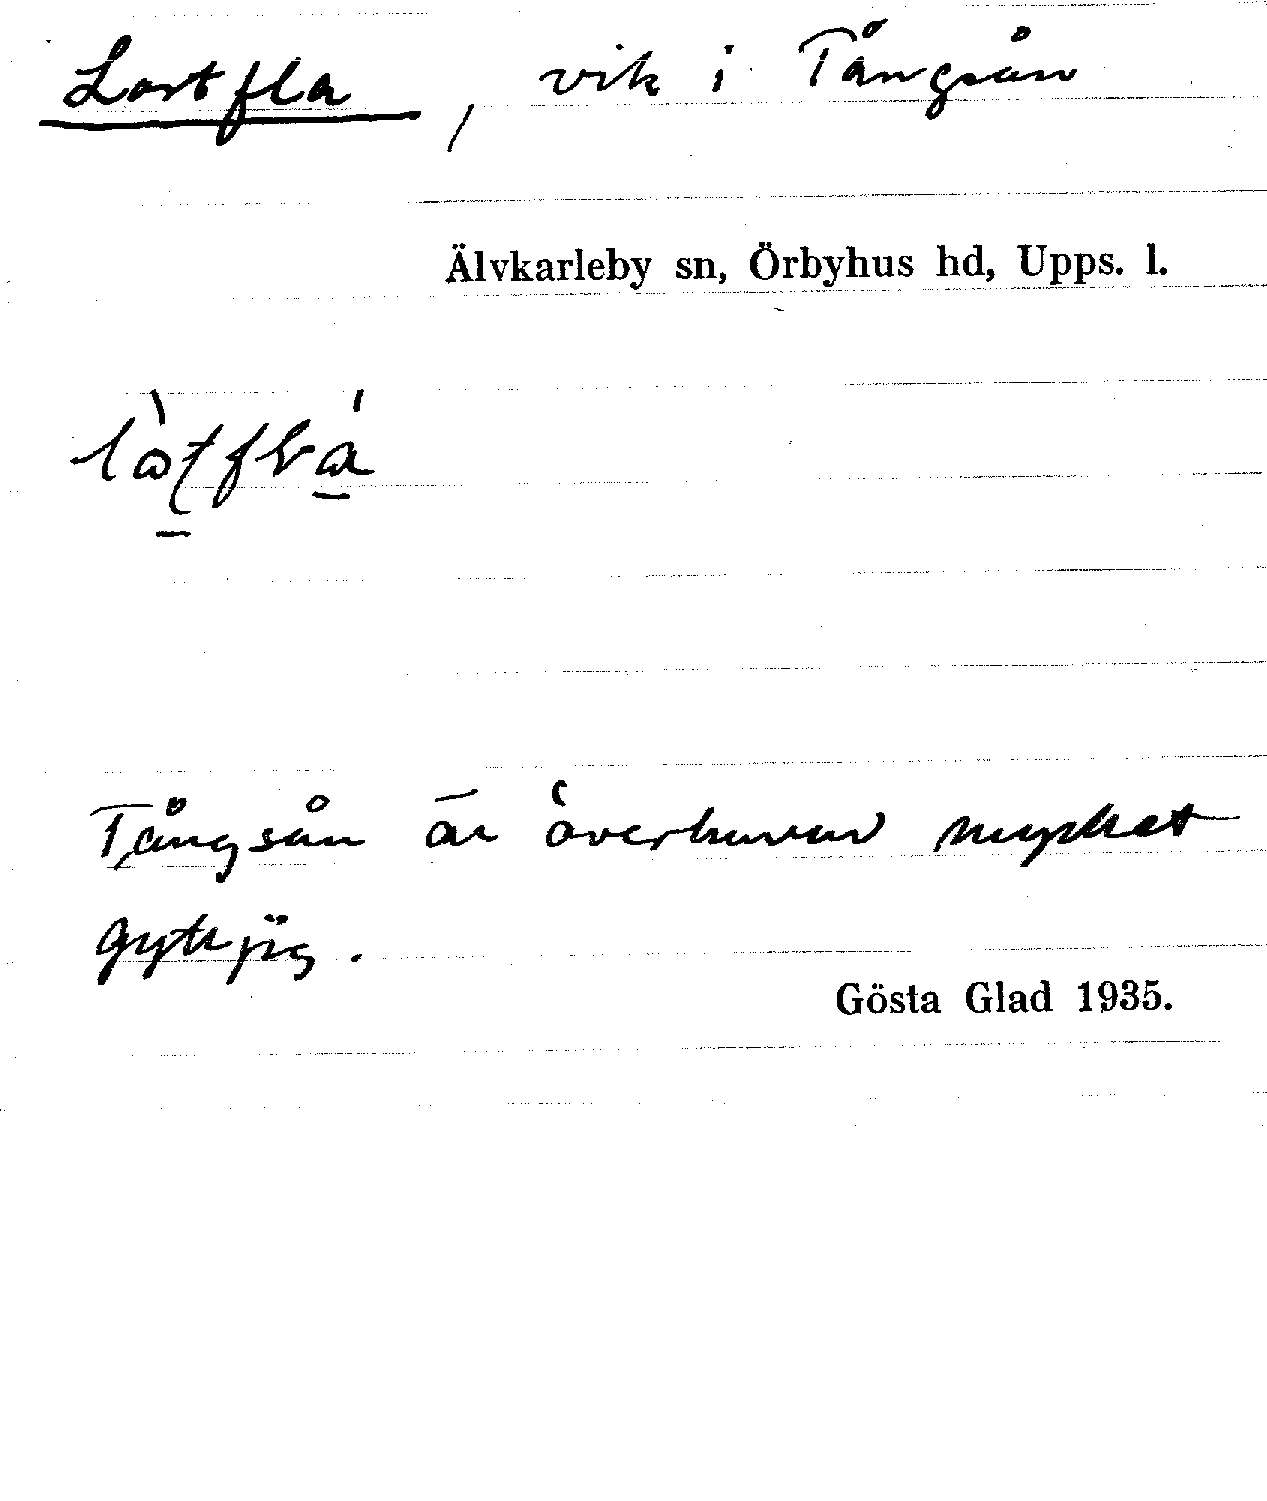 Lortfla, vik i Tångsån
Älvkarleby sn, Örbyhus hd, Upps. l.
Tångsån är överhuvud mycket
gyttjig.
Gösta Glad 1935.